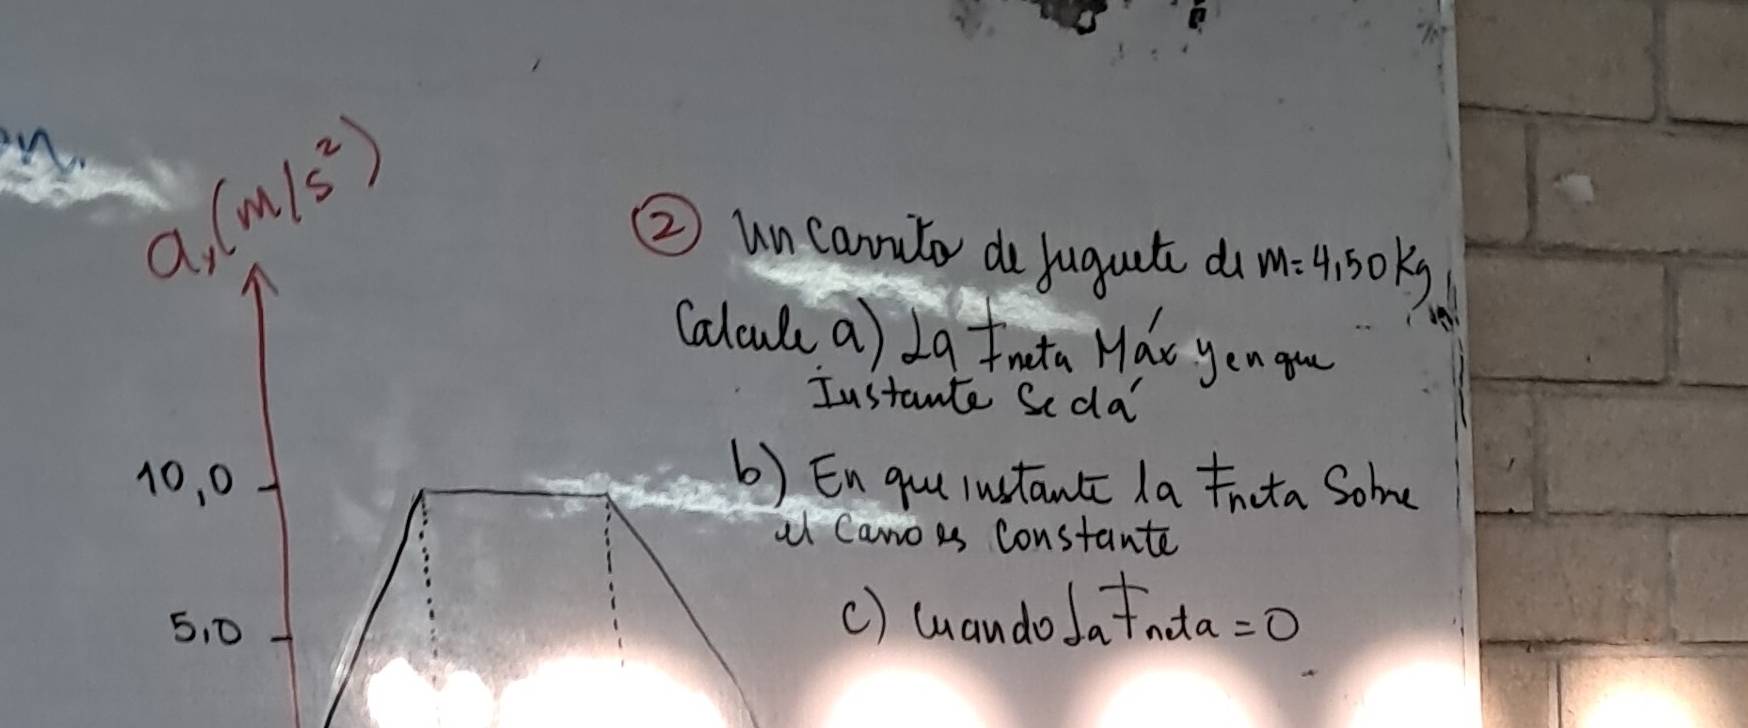 n.
aₓ(m/s²)
10,0
5,0
② Un carrito de juguete de m=4,50 Kg
Calcule a) La Fneta Máx y en que
Instante se dá
b) En que instante la Fneta Sobre
el carro es constante
c) Cuando la Fneta = 0